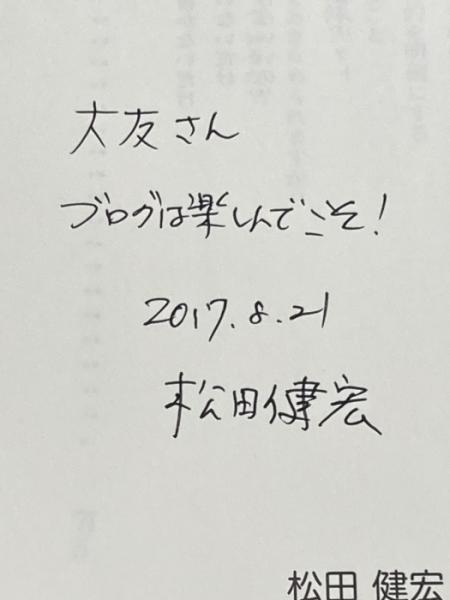 大友さん
ブログは楽しんでこそ！
2017.8.21
松田健宏
松田 健宏